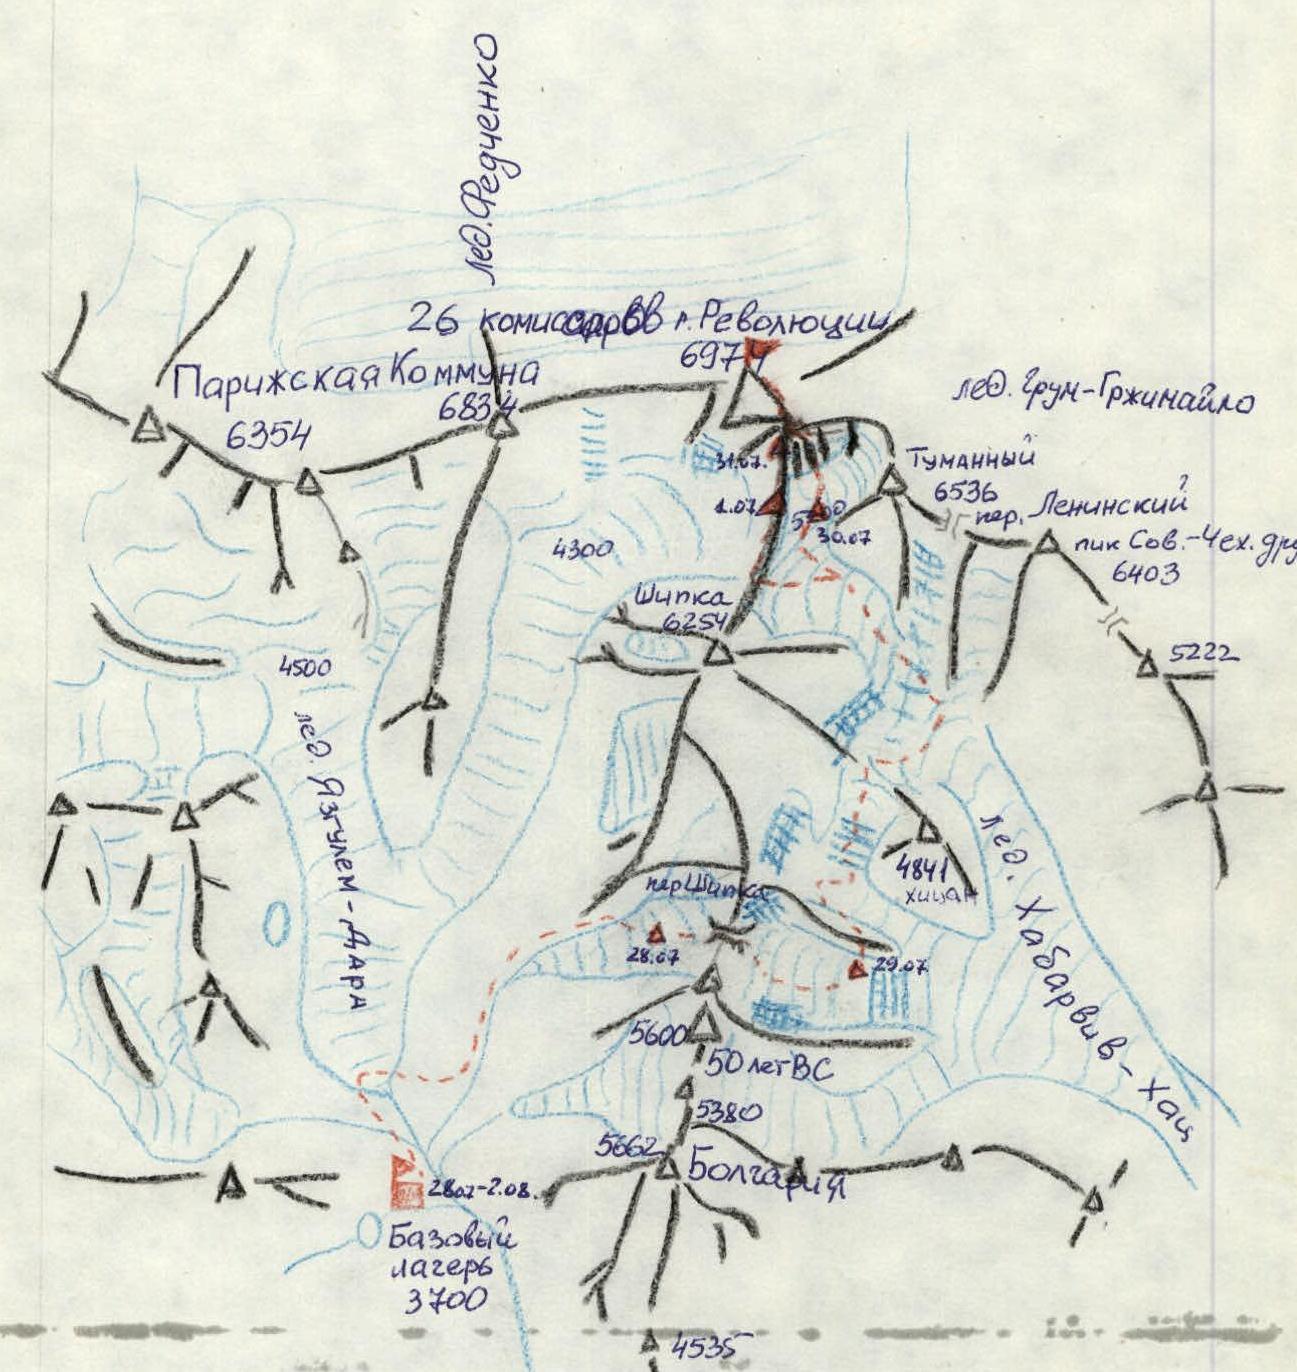 лед. Федченко
26 комиссаров
п. Революции
6974
Парижская Коммуна
6834
6354
лед. Грум-Гржимайло
Туманный
6536
31.07.
1.07
30.07
пер. Ленинский ?
пик Сов.-Чех. дру
6403
4300
Шипка
6254
5222
4500
лед. Язгулем-Дара
лед. Хабарвив-хац
4841
хицан
пер Шипка
28.07
29.07
5600
50 лет ВС
5380
5662
Болгария
2807-2.08.
Базовый
лагерь
3700
4535